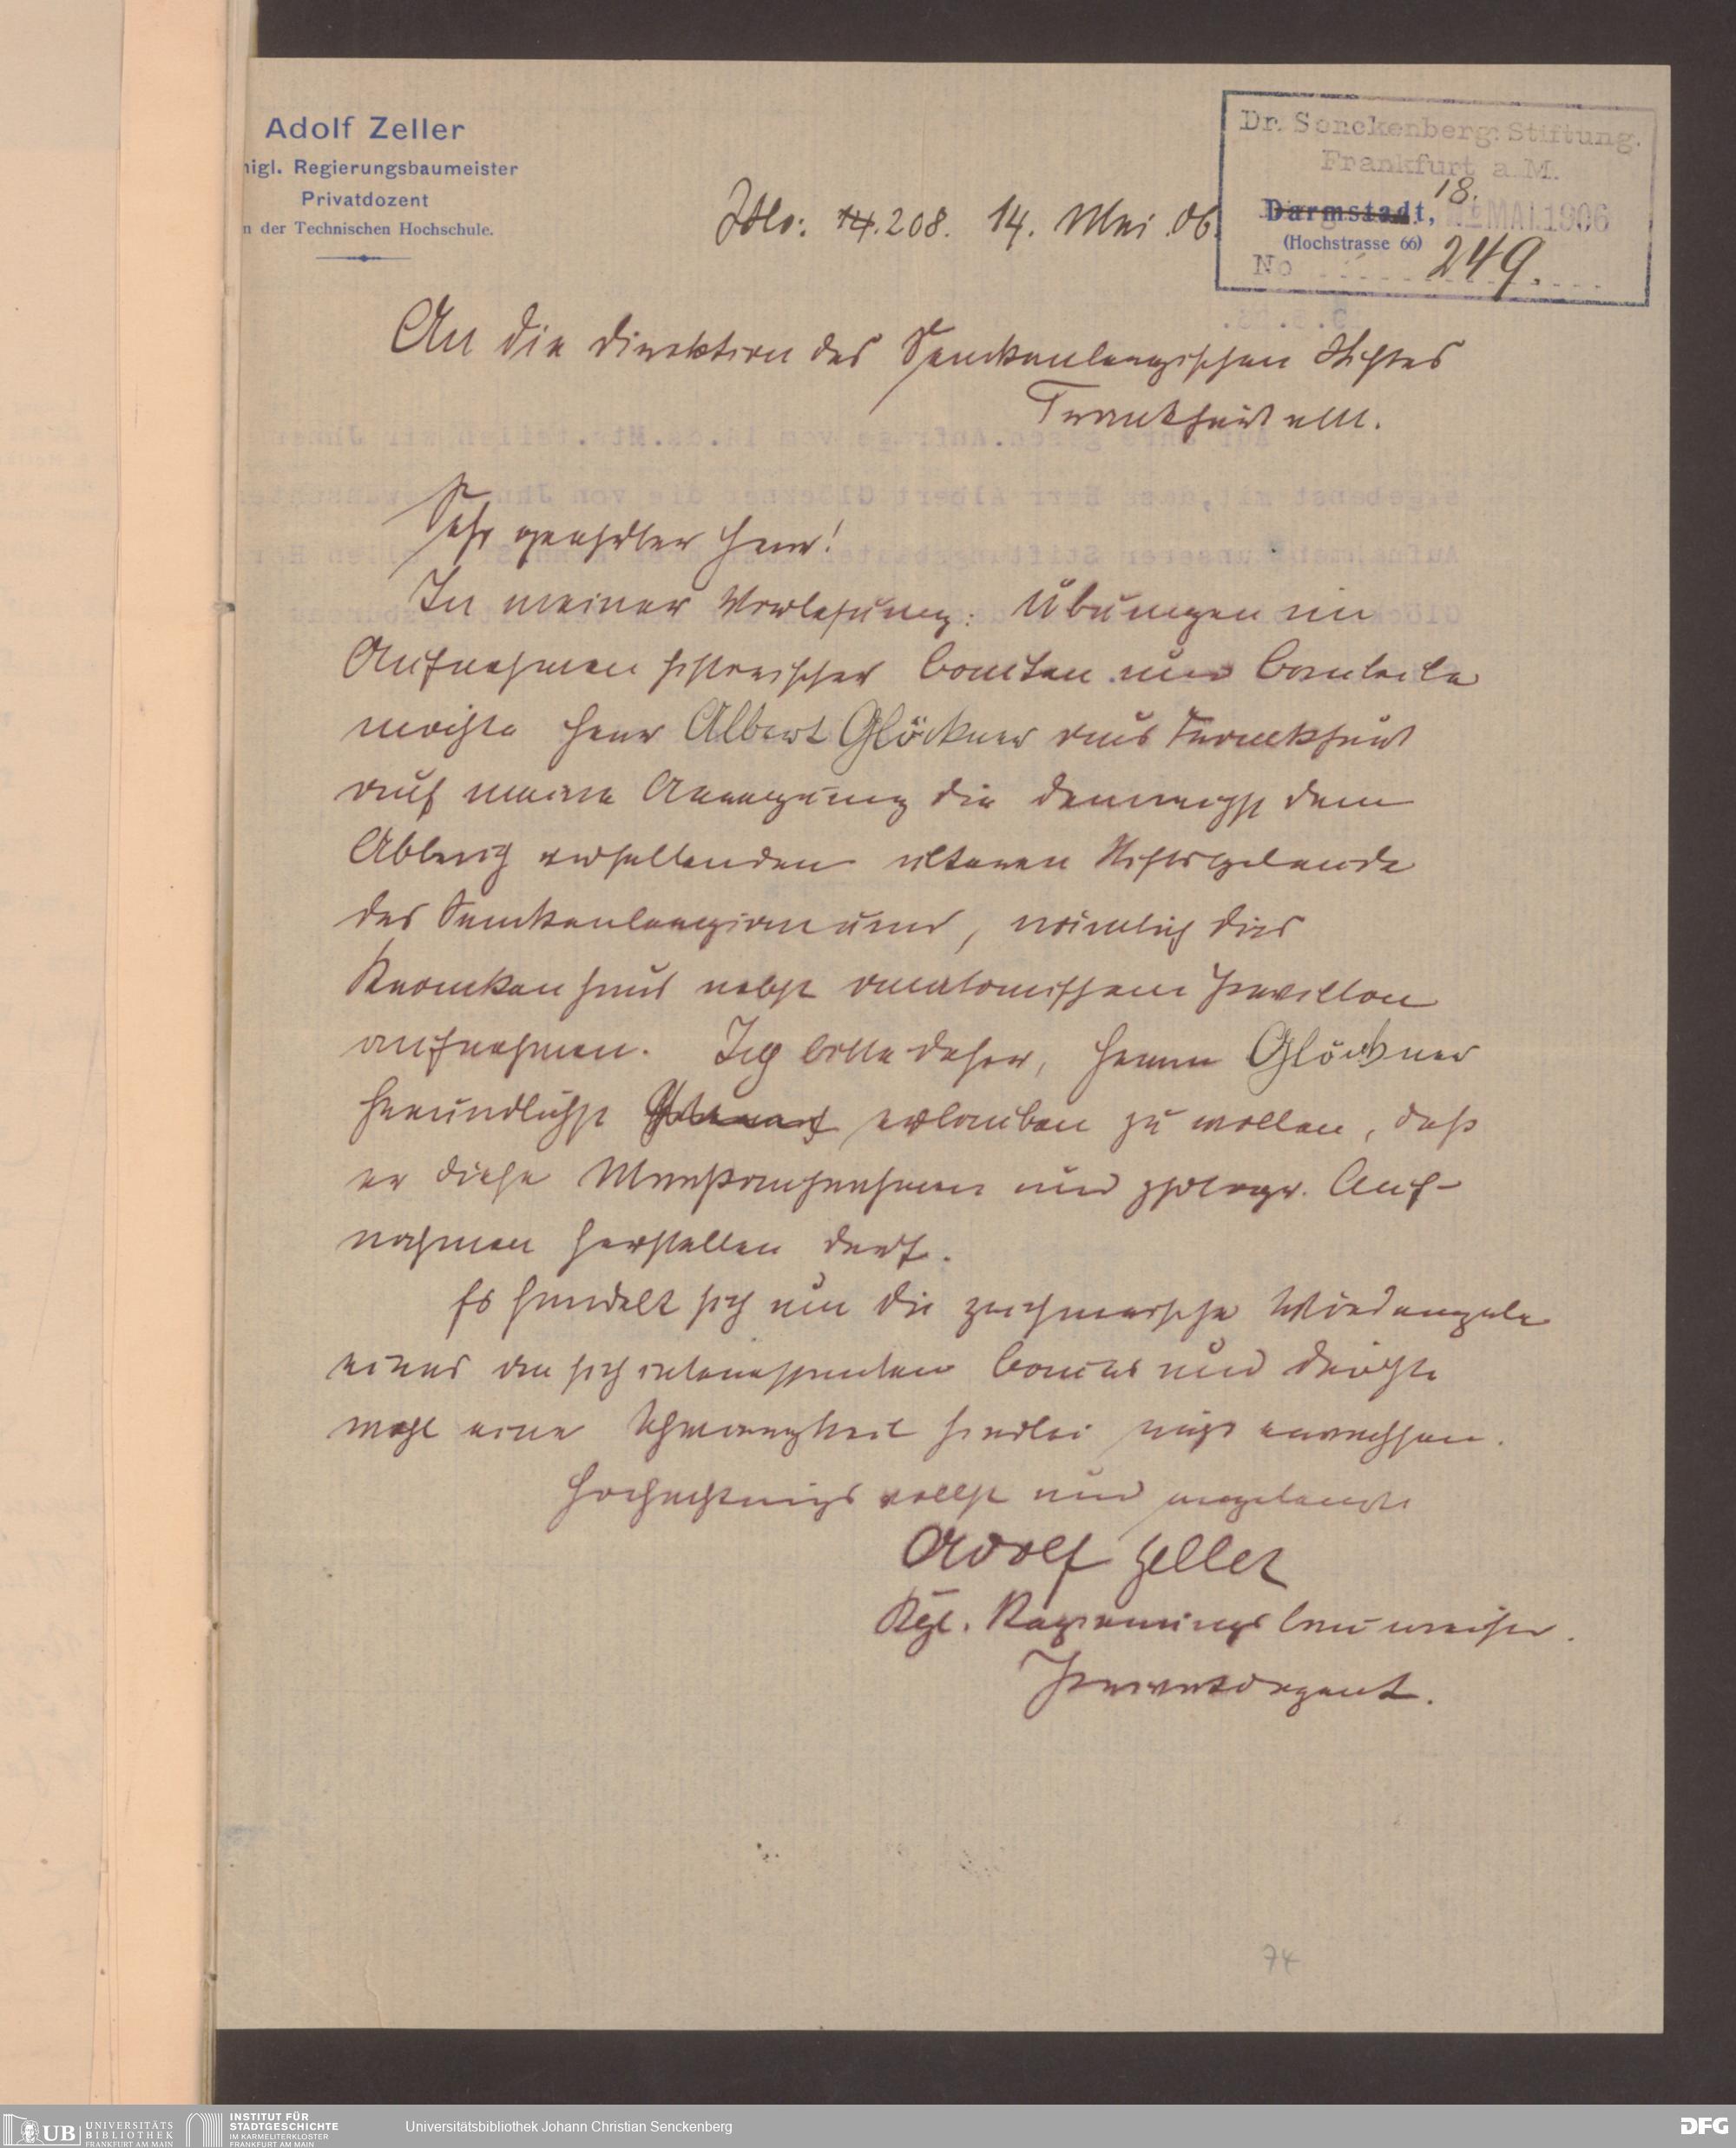 Adolf Zeller
nigl. Regierungsbaumeister
Privatdozent
n der Technischen Hochschule.
Dr. Senckenberg: Stiftung.
Frankfurt a M.
18.
Darmstadt, MAI. 1906
(Hochstrasse 66)
No 249.
208. 14. Mai 06.
An die Direktion des Senckenbergischen Stiftes
Frankfurt a/M.
Sehr geehrter Herr!
In meiner Vorlesung: Übungen im
Aufnehmen historischer Bauten und Bauteile
möchte Herr Albert Glöckner aus Frankfurt
auf meine Anregung die demnächst dem
Abbruch verfallenden älteren Stiftsgebäude
des Senckenbergianums, nämlich das
Krankenhaus nebst anatomischem Pavillon
aufnehmen. Ich bitte daher, Herrn Glöckner
freundlichst erlauben zu wollen, daß
er diese Messaufnahmen und photogr. Auf-
nahmen herstellen darf.
Es handelt sich um die zeichnerische Wiedergabe
eines an sich interessanten Baues und dürfte
wohl eine Schwierigkeit hierbei nicht erwachsen.
Hochachtungsvollst und ergebenst
Adolf Zeller
Kgl. Regierungsbaumeister.
Privatdozent.
74
UB UNIVERSITÄTS
BIBLIOTHEK
FRANKFURT AM MAIN
INSTITUT FÜR
STADTGESCHICHTE
IM KARMELITERKLOSTER
FRANKFURT AM MAIN
Universitätsbibliothek Johann Christian Senckenberg
DFG